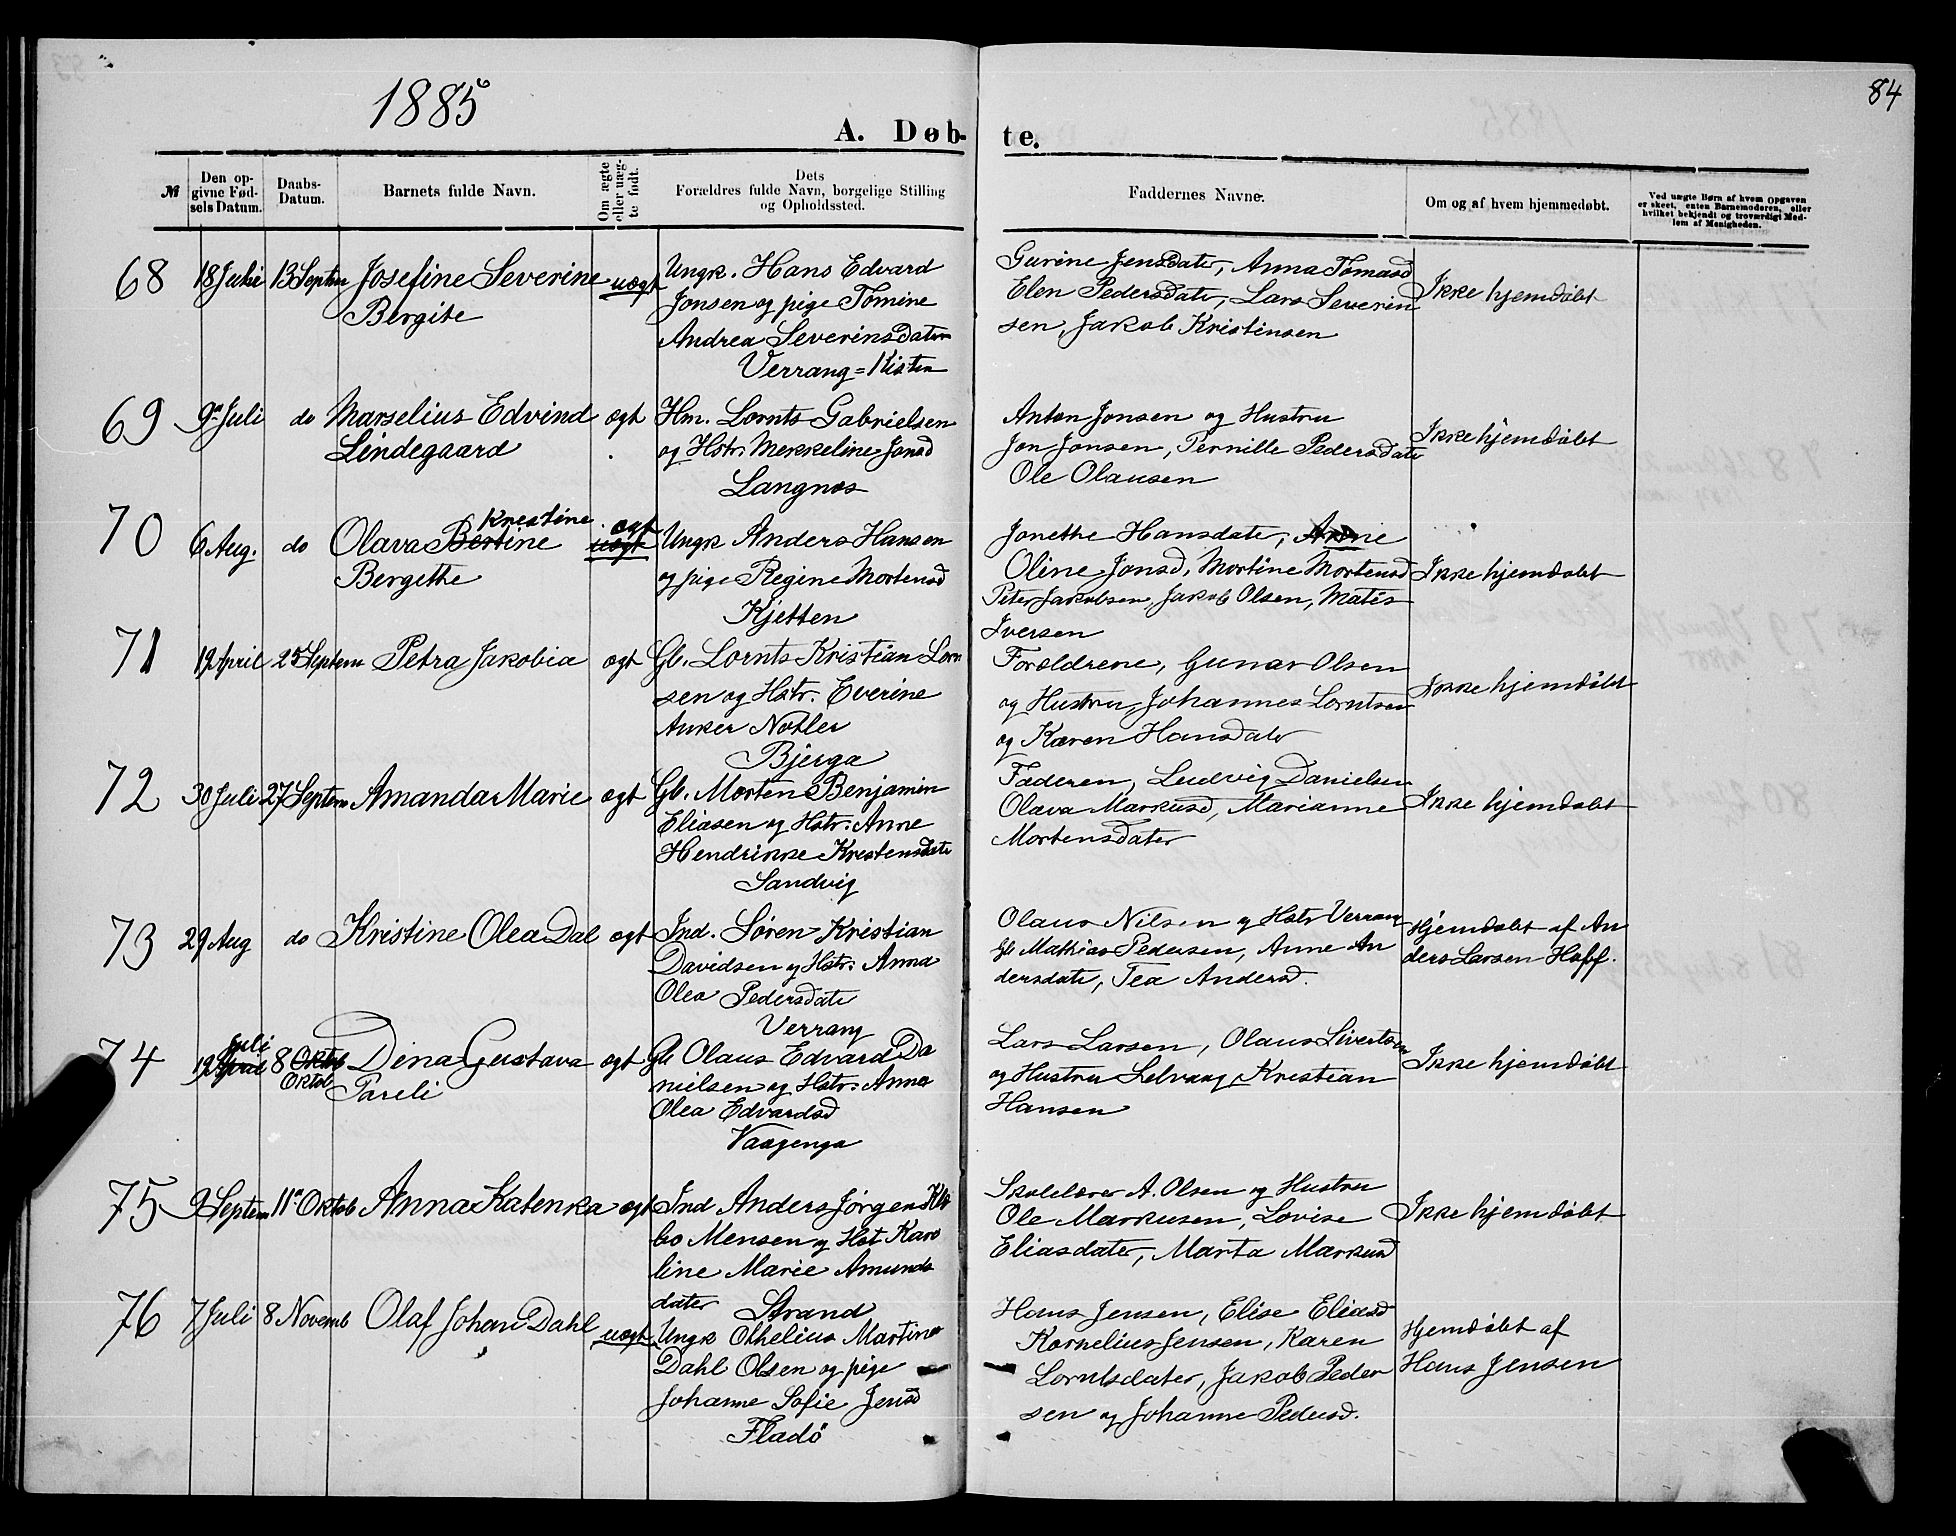 84
1885
A. Døb- te.
№
Den opgivne Fødsels Datum.
Daabs-Datum.
Barnets fulde Navn.
Om ægte eller uægte født.
Dets Forældres fulde Navn, borgelige Stilling og Opholdssted.
Faddernes Navne.
Om og af hvem hjemmedøbt.
Ved uægte Børn af hvem Opgaven er skeet, enten Barnemoderen, eller hvilket bekjendt og troværdigt Medlem af Menigheden.
68 18 Juli 13 Septem Josefine Severine uægt Ungk. Hans Edvard
Bergite Jonsen og pige Tomine
Andrea Severinsdater
Verrang=Kisten
Gurine Jensdater, Anna Tomasd
Elen Pedersdater, Lars Severin
sen, Jakob Kristinsen
Ikke hjemdøbt
69 9de Juli do Marselius Edvind ægt Hm. Lornts Gabrielsen
Lindegaard og Hstr. Mekkeline Jonsd
Langnæs
Anton Jonsen og Hustru
Jon Jonsen, Pernille Pedersdater
Ole Olausen
Ikke hjemdøbt
70 6 Aug. do Olava Bertine Krestine uægt ægt Ungk Anders Hansen
Bergithe og pige Regine Mortensd
Kjetten
Jonethe Hansdater, Arne
Oline Jonsd, Mortine Mortensd
Peter Jakobsen, Jakob Olsen, Matis
Iversen
Ikke hjemdøbt
71 12 April 25 Septem Petra Jakobia ægt Gb. Lornts Kristian Lorn
sen og Hstr. Everine
Anker Nobler
Bjerga
Forældrene, Gunar Olsen
og Hustru, Johannes Lorntsen
og Karen Hansdater
Ikke hjemdøbt
72 30 Juli 27 Septem Amanda Marie ægt Gb. Morten Benjamin
Eliasen og Hstr. Anne
Hendrikke Krestensdater
Sandvig
Faderen, Ludvig Danielsen
Olava Markusd, Marianne
Mortensdater
Ikke hjemdøbt
73 29 Aug do Kristine Olea Dal ægt Ind. Søren Kristian
Davidsen og Hstr. Anna
Olea Pedersdater
Verrang
Olaus Nilsen og Hstr Verran
Gb Mathias Pedersen, Anne An
dersdater, Tea Andersd.
Hjemdøbt af An
ders Larsen Hoff.
74 12 April Juli 8 Oktob Oktob Dina Gustava ægt Gb Olaus Edvard Da
Pareli nielsen og Hstr. Anna
Olea Edvardsd
Vaagenga
Lars Larsen, Olaus Sivertsen
og Hustru Selvaag, Kristian
Hansen
Ikke hjemdøbt
75 9 Septem 11te Oktob Anna Katenka ægt Ind Anders Jørgen Kle
bo Mensen og Hst Karo
line Marie Amunds
dater Strand
Skolelærer A. Olsen og Hustru
Ole Markusen, Lovise
Eliasdater, Marta Markusd
Ikke hjemdøbt
76 7 Juli 8 Novemb Olaf Johan Dahl uægt Ungk Othelius Martines
Dahl Olsen og pige
Johanne Sofie Jensd
Fladø
Hans Jensen, Elise Eliasd
Kornelius Jensen, Karen
Lorntsdater, Jakob Peder
sen og Johanne Pedersd.
Hjemdøbt af
Hans Jensen